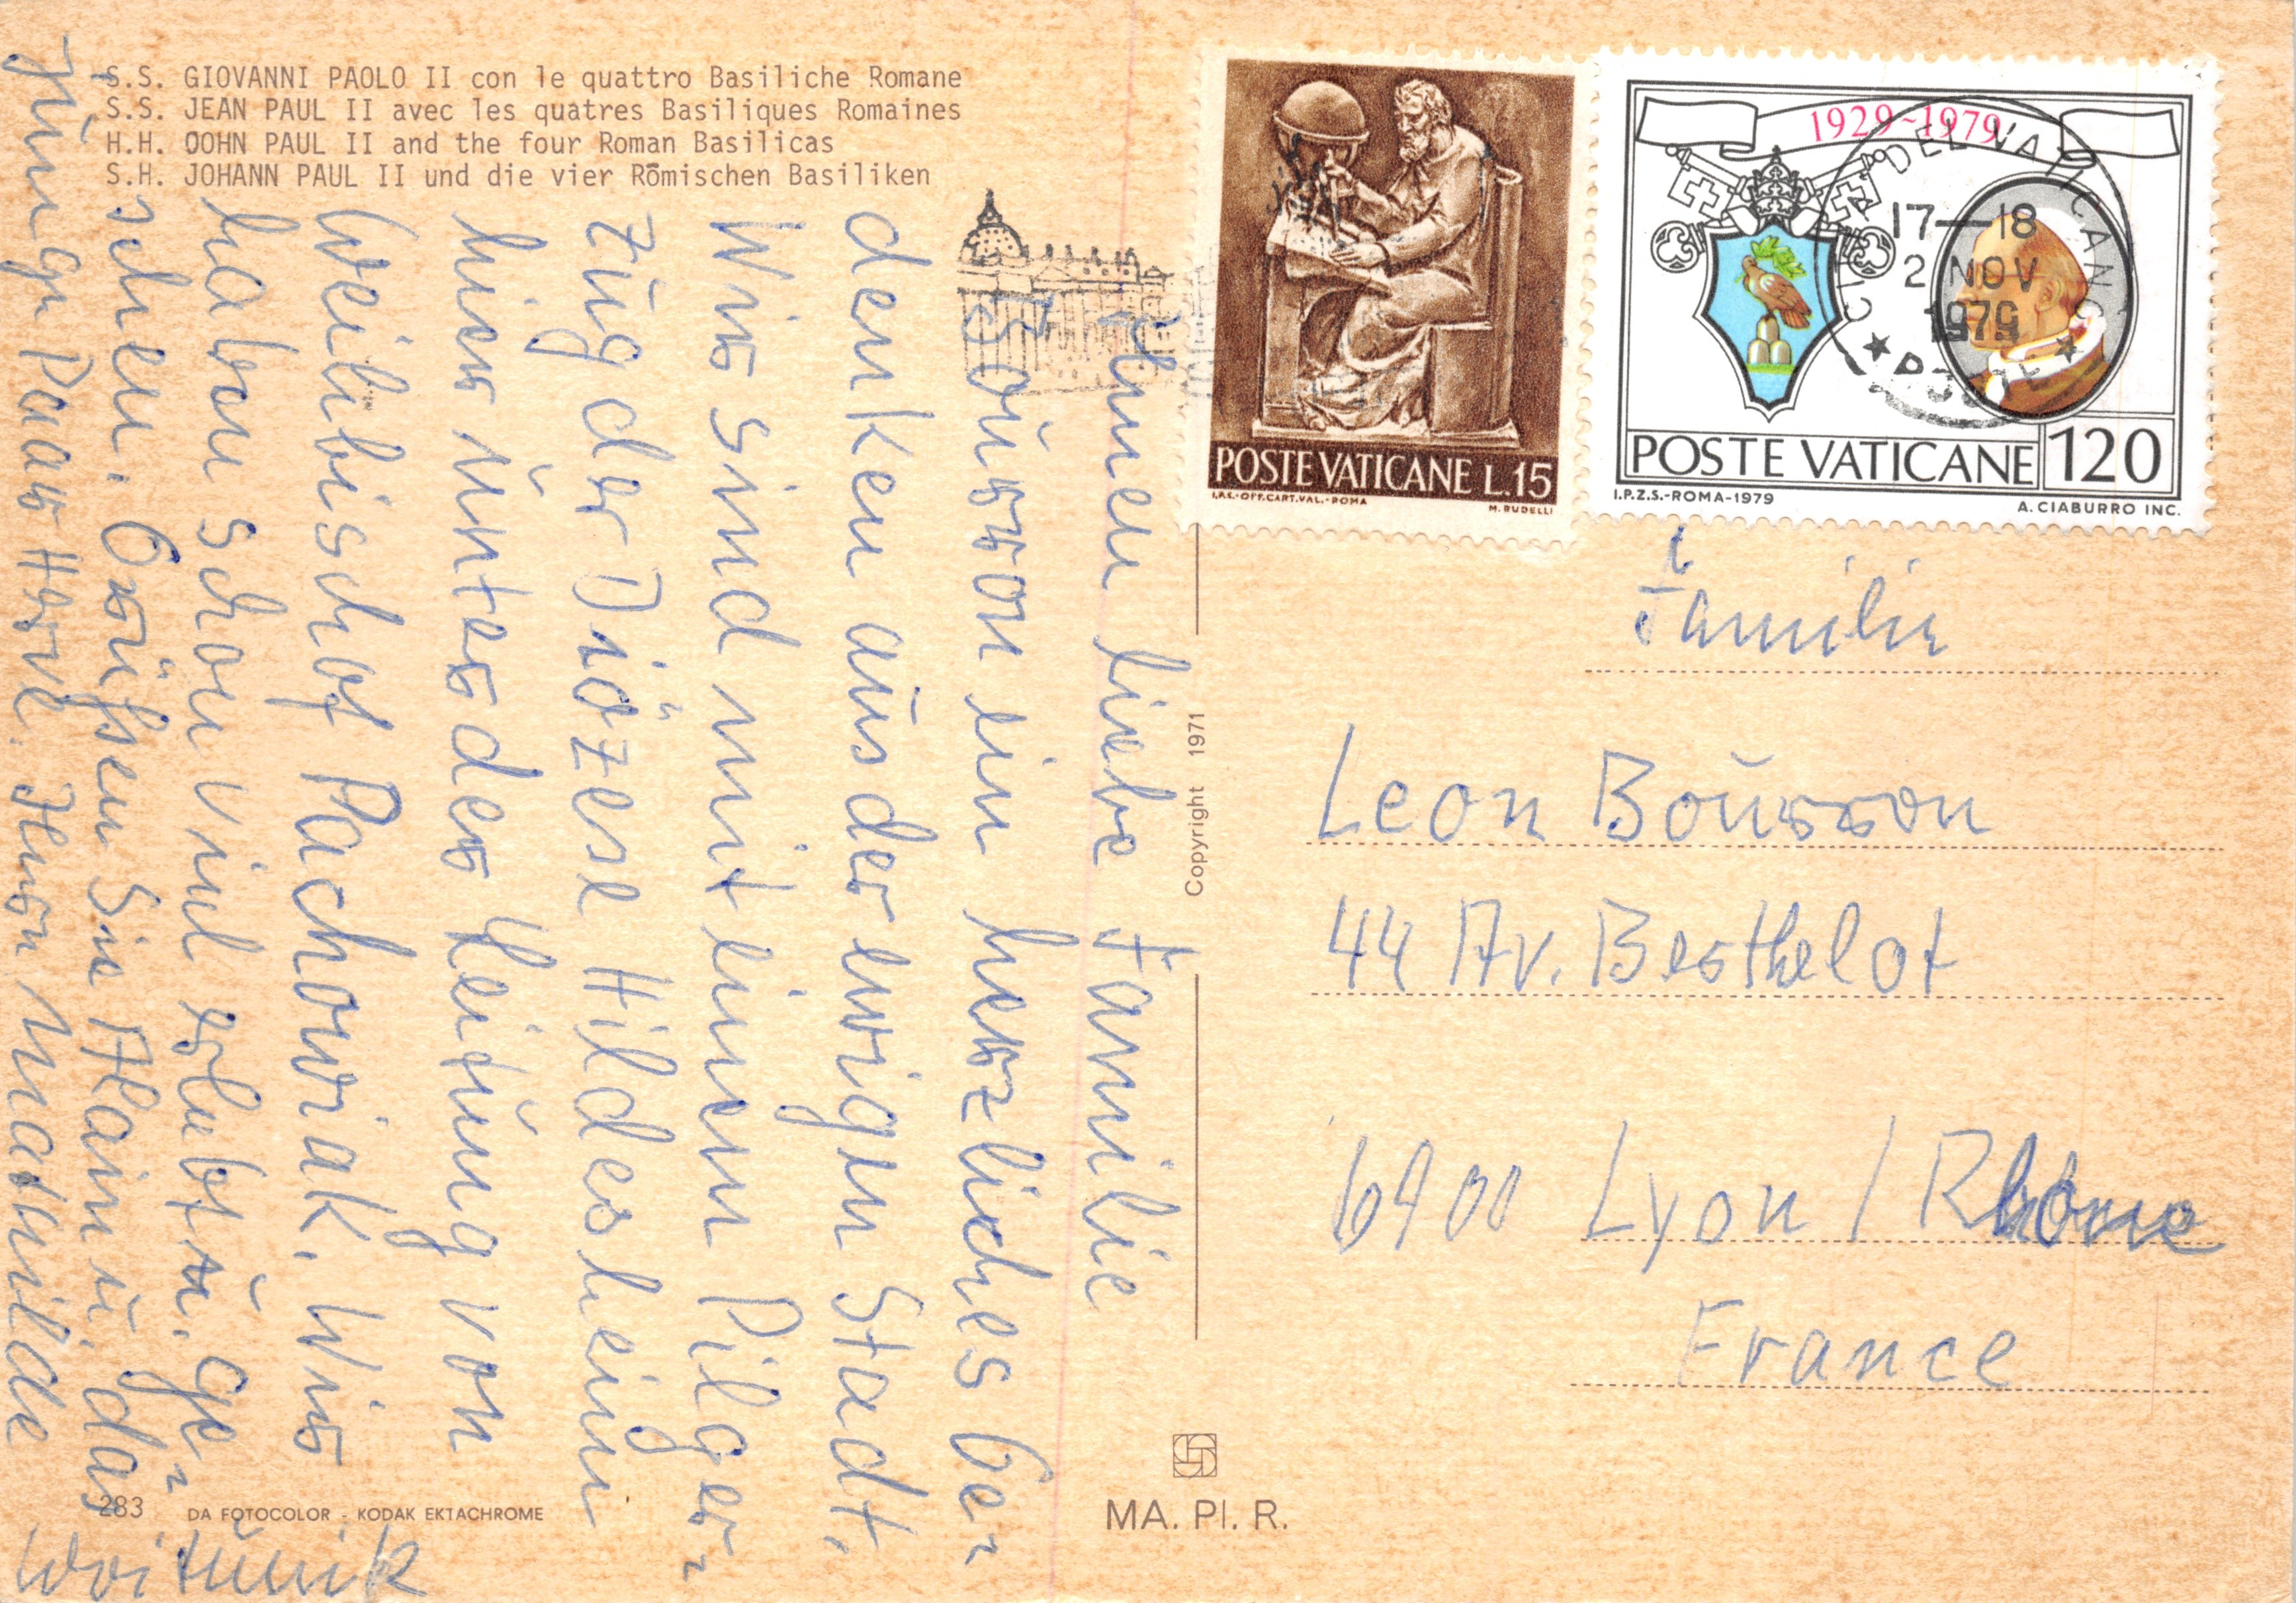 S.S. GIOVANNI PAOLO II con le quattro Basiliche Romane
S.S. JEAN PAUL II avec les quatres Basiliques Romaines
H.H. OOHN PAUL II and the four Roman Basilicas
S.H. JOHANN PAUL II und die vier Römischen Basiliken
Ihnen liebe Familie
Bourron ein herzliches Ge=
denken aus der ewigen Stadt.
Wir sind mit einem Pilger=
zug der Diözese Hildesheim
hier unter der Leitung von
Weihbischof Pachowiak. Wir
haben schon viel erlebt u. ge=
sehen. Grüßen Sie Alain u. das
junge Paar Herve. Ihre Mathilde
Woitunik
1929-1979
CITTA DEL VATICANO
17-18
2 NOV
1979
POSTE
POSTE VATICANE L.15
I.P.S.-OFF.CART.VAL.-ROMA
M. RUDELLI
POSTE VATICANE 120
I.P.Z.S.-ROMA-1979
A. CIABURRO INC.
Familie
Leon Bourron
44 Av. Berthelot
6900 Lyon / Rhône
France
Copyright 1971
MA. PI. R.
283 DA FOTOCOLOR - KODAK EKTACHROME